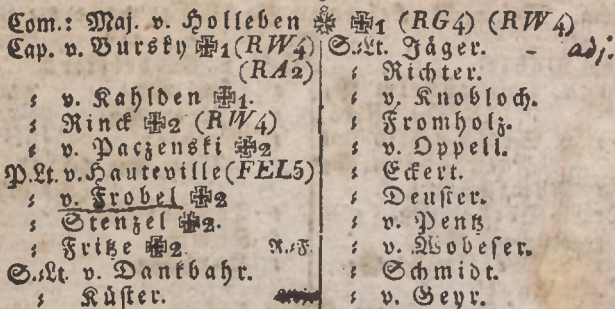 Com.: Maj. v. Holleben ✠1 (RG4) (RW4)
Cap. v. Bursky ✠1 (RW4)
(RA2)
⸗ v. Kahlden ✠1.
⸗ Rinck ✠2 (RW4)
⸗ v. Paczenski ✠2
P.Lt. v. Hauteville (FEL5)
⸗ v. Frobel ✠2
⸗ Stenzel ✠2.
⸗ Fritze ✠2. R.⸗F.
S.⸗Lt. v. Dankbahr.
⸗ Küster.
S.⸗Lt. Jäger. - adj.
⸗ Richter.
⸗ v. Knobloch.
⸗ Fromholz.
⸗ v. Oppell.
⸗ Eckert.
⸗ Deuster.
⸗ v. Pentz
⸗ v. Wobeser.
⸗ Schmidt.
⸗ v. Geyr.